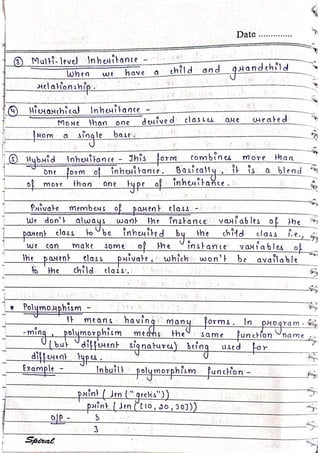 Date ..............
③ Multi-level Inheritance -
When we have a child and grandchild
relationship.
④ Hierarchical Inheritance -
More than one derived classes are created
from a single base.
⑤ Hybrid Inheritance - This form combines more than
one form of inheritance. Basically, it is a blend
of more than one type of inheritance.
Private members of parent class -
We don't always want the instance variables of the
parent class to be inherited by the child class i.e.,
we can make some of the instance variables of
the parent class private, which won't be available
to the child class.
• Polymorphism -
It means having many forms. In program-
-ming, polymorphism means the same function name
(but different signatures) being used for
different types.
Example - Inbuilt polymorphism function -
print (len ("geeks"))
print (len ([10, 20, 30]))
O/P - 5
3
Spiral